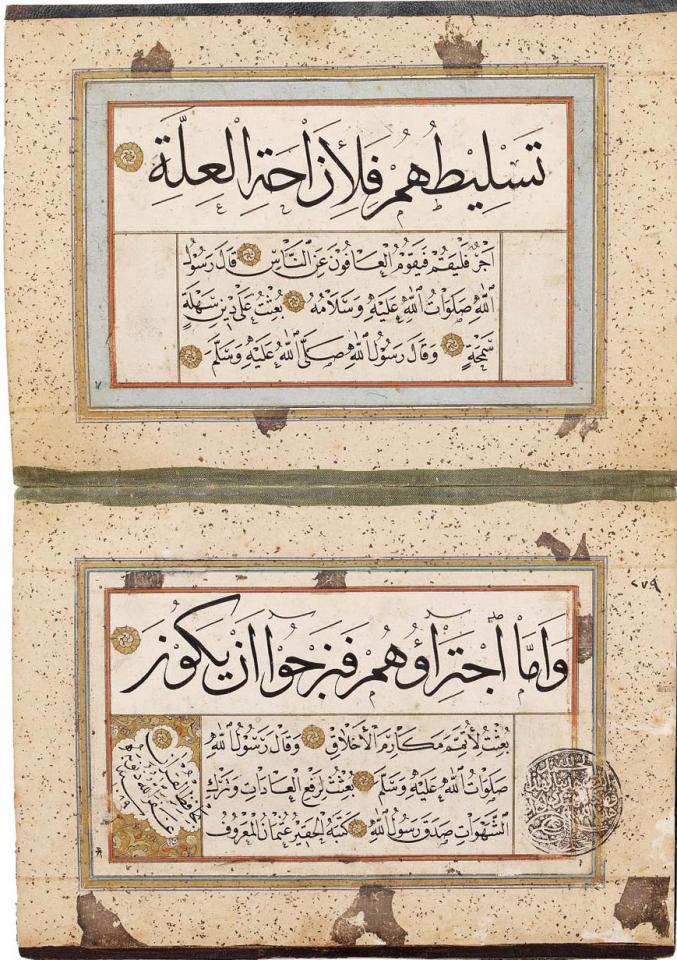 تَسْلِيطُهُمْ فَلِأَزَاحَةِ الْعِلَّةِ
اَجْرٌ فَلْيَقُمْ فَيَقُومُ الْعَافُونَ عَنِ النَّاسِ قَالَ رَسُولُ
اللّٰهِ صَلَوَاتُ اللّٰهِ عَلَيْهِ وَسَلَامُهُ بُعِثْتُ عَلٰى دِينٍ سَهْلَةٍ
سَمْحَةٍ وَقَالَ رَسُولُ اللّٰهِ صَلَّى اللّٰهُ عَلَيْهِ وَسَلَّمَ
٧
٢٧٩
وَاَمَّا اجْتِرَاؤُهُمْ فَنَرْجُوا اَنْ يَكُونَ
بُعِثْتُ لِأُتَمِّمَ مَكَارِمَ الْأَخْلَاقِ وَقَالَ رَسُولُ اللّٰهِ
صَلَوَاتُ اللّٰهِ عَلَيْهِ وَسَلَّمَ بُعِثْتُ لِرَفْعِ الْعَادَاتِ وَتَرْكِ
الشَّهَوَاتِ صَدَقَ رَسُولُ اللّٰهِ كَتَبَهُ الْحَقِيرُ عُثْمَانُ الْمَعْرُوفُ
بحافظ القرآن
غفر الله ذنوبه